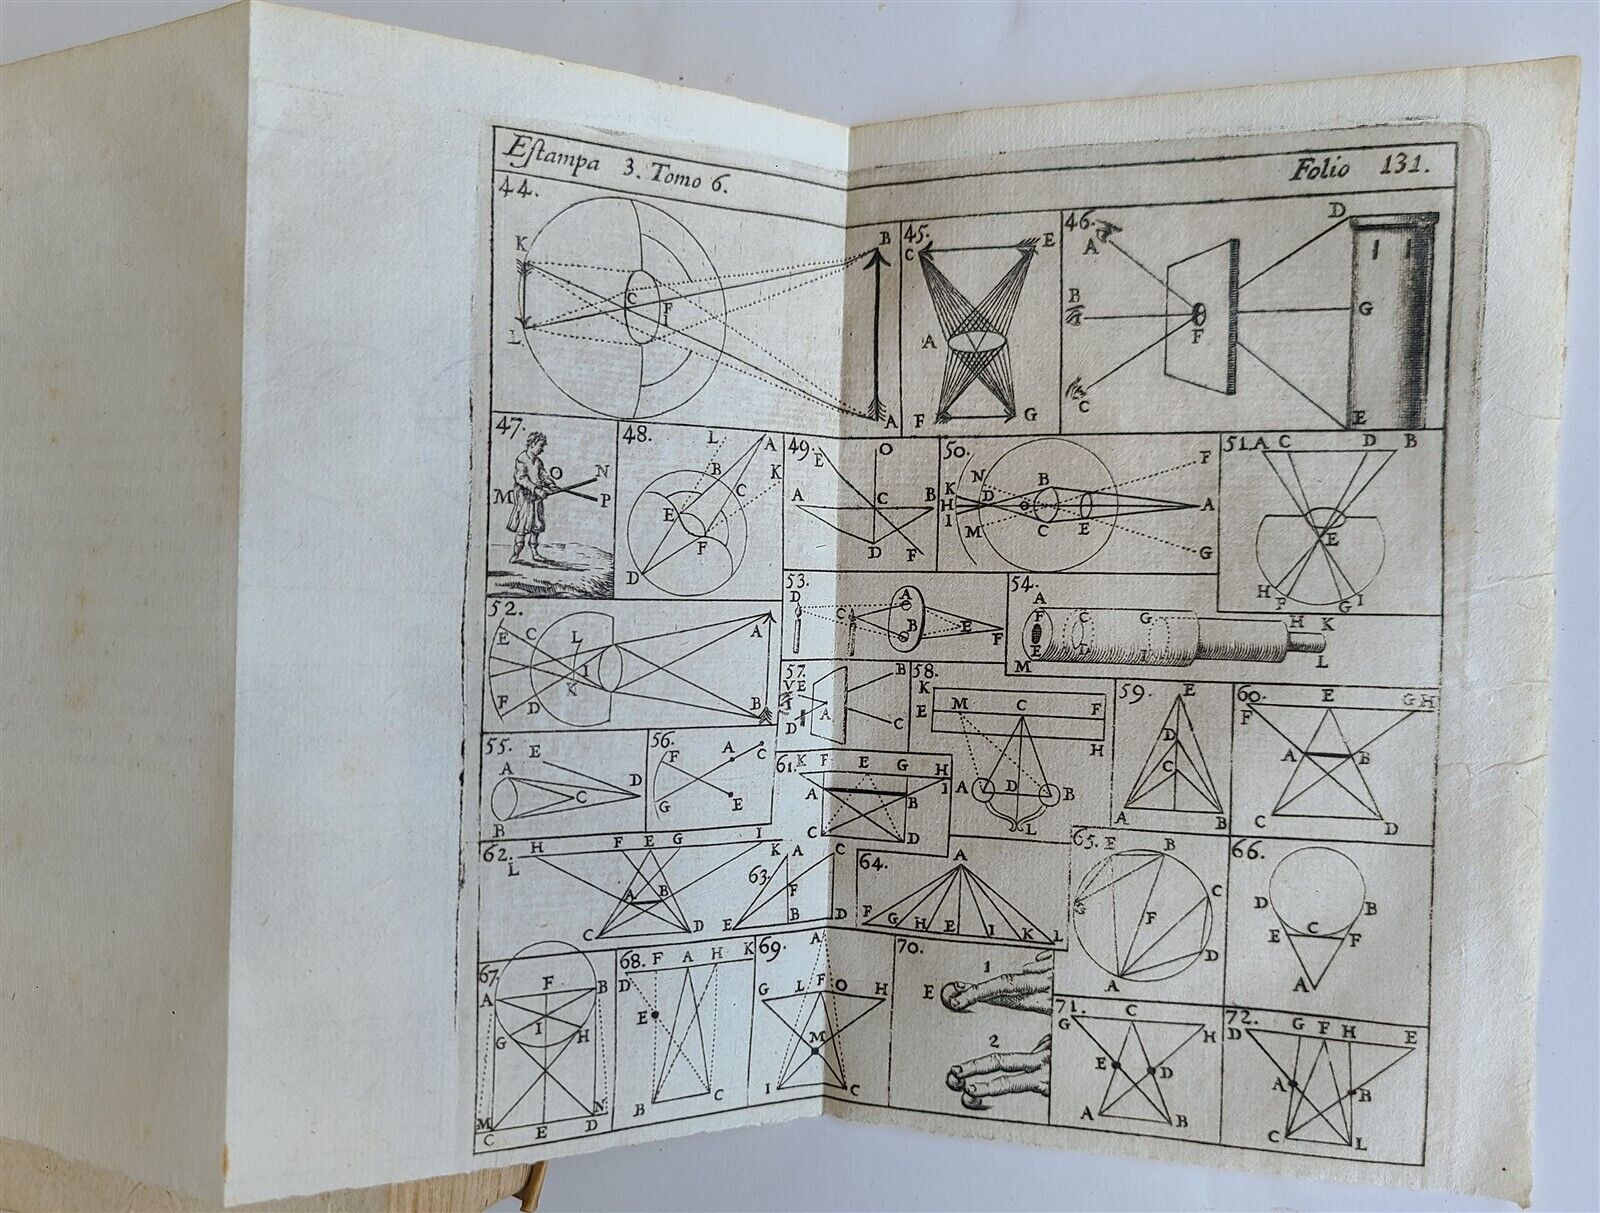 Eſtampa 3. Tomo 6.
Folio 131.
44.
K
L
C
F
I
B
A
45.
C
E
A
F
G
46.
A
B
I
C
F
D
G
E
47.
M
O
N
P
48.
L
A
B
K
C
E
F
D
49.
E
O
A
C
B
D
F
50.
N
K
H
I
D
M
B
O
C
E
F
A
G
51.
A C D B
E
H F G I
52.
E
C
L
I
K
F
D
A
B
53.
D
C
A
B
E
F
54.
A
F
E
M
C
G
I
H
K
L
55.
E
A
C
D
B
56.
F
A
C
G
E
57.
V E
I
D
A
B
C
58.
K
E
M
C
F
H
A
D
B
L
59.
E
D
C
A
B
60.
F
E
G H
A
B
C
D
61.
K F E G H
I
A
B
C
D
62.
L
H F E G I
K
A
B
C
D
63.
A
C
F
E
B
D
64.
A
F G H E I K L
65.
E
B
G
C
F
D
A
66.
D
B
E
C
F
A
67.
A
F
B
I
G
H
M
C
E
D
N
68.
D
F A H K
E
B
C
69.
A
G L F O H
M
I
C
70.
E
1
2
71.
G
C
H
E
D
A
B
72.
D
G F H E
A
B
C
L